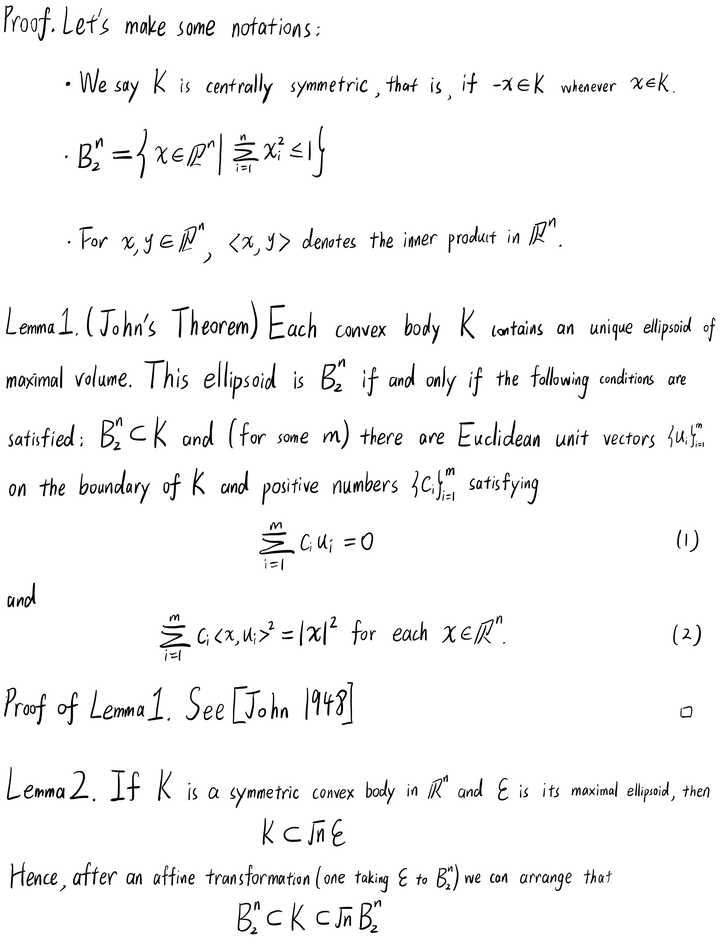 Proof. Let's make some notations:
· We say K is centrally symmetric, that is, if -x∈K whenever x∈K.
· B₂ⁿ = { x∈ℝⁿ | ∑ᵢ₌₁ⁿ xᵢ² ≤ 1 }
· For x, y ∈ ℝⁿ, <x, y> denotes the inner product in ℝⁿ.
Lemma 1. (John's Theorem) Each convex body K contains an unique ellipsoid of
maximal volume. This ellipsoid is B₂ⁿ if and only if the following conditions are
satisfied: B₂ⁿ ⊂ K and (for some m) there are Euclidean unit vectors {uᵢ}ᵢ₌₁ᵐ
on the boundary of K and positive numbers {cᵢ}ᵢ₌₁ᵐ satisfying
∑ᵢ₌₁ᵐ cᵢ uᵢ = 0 (1)
and
∑ᵢ₌₁ᵐ cᵢ <x, uᵢ>² = |x|² for each x∈ℝⁿ. (2)
Proof of Lemma 1. See [John 1948] □
Lemma 2. If K is a symmetric convex body in ℝⁿ and ℰ is its maximal ellipsoid, then
K ⊂ √n ℰ
Hence, after an affine transformation (one taking ℰ to B₂ⁿ) we can arrange that
B₂ⁿ ⊂ K ⊂ √n B₂ⁿ